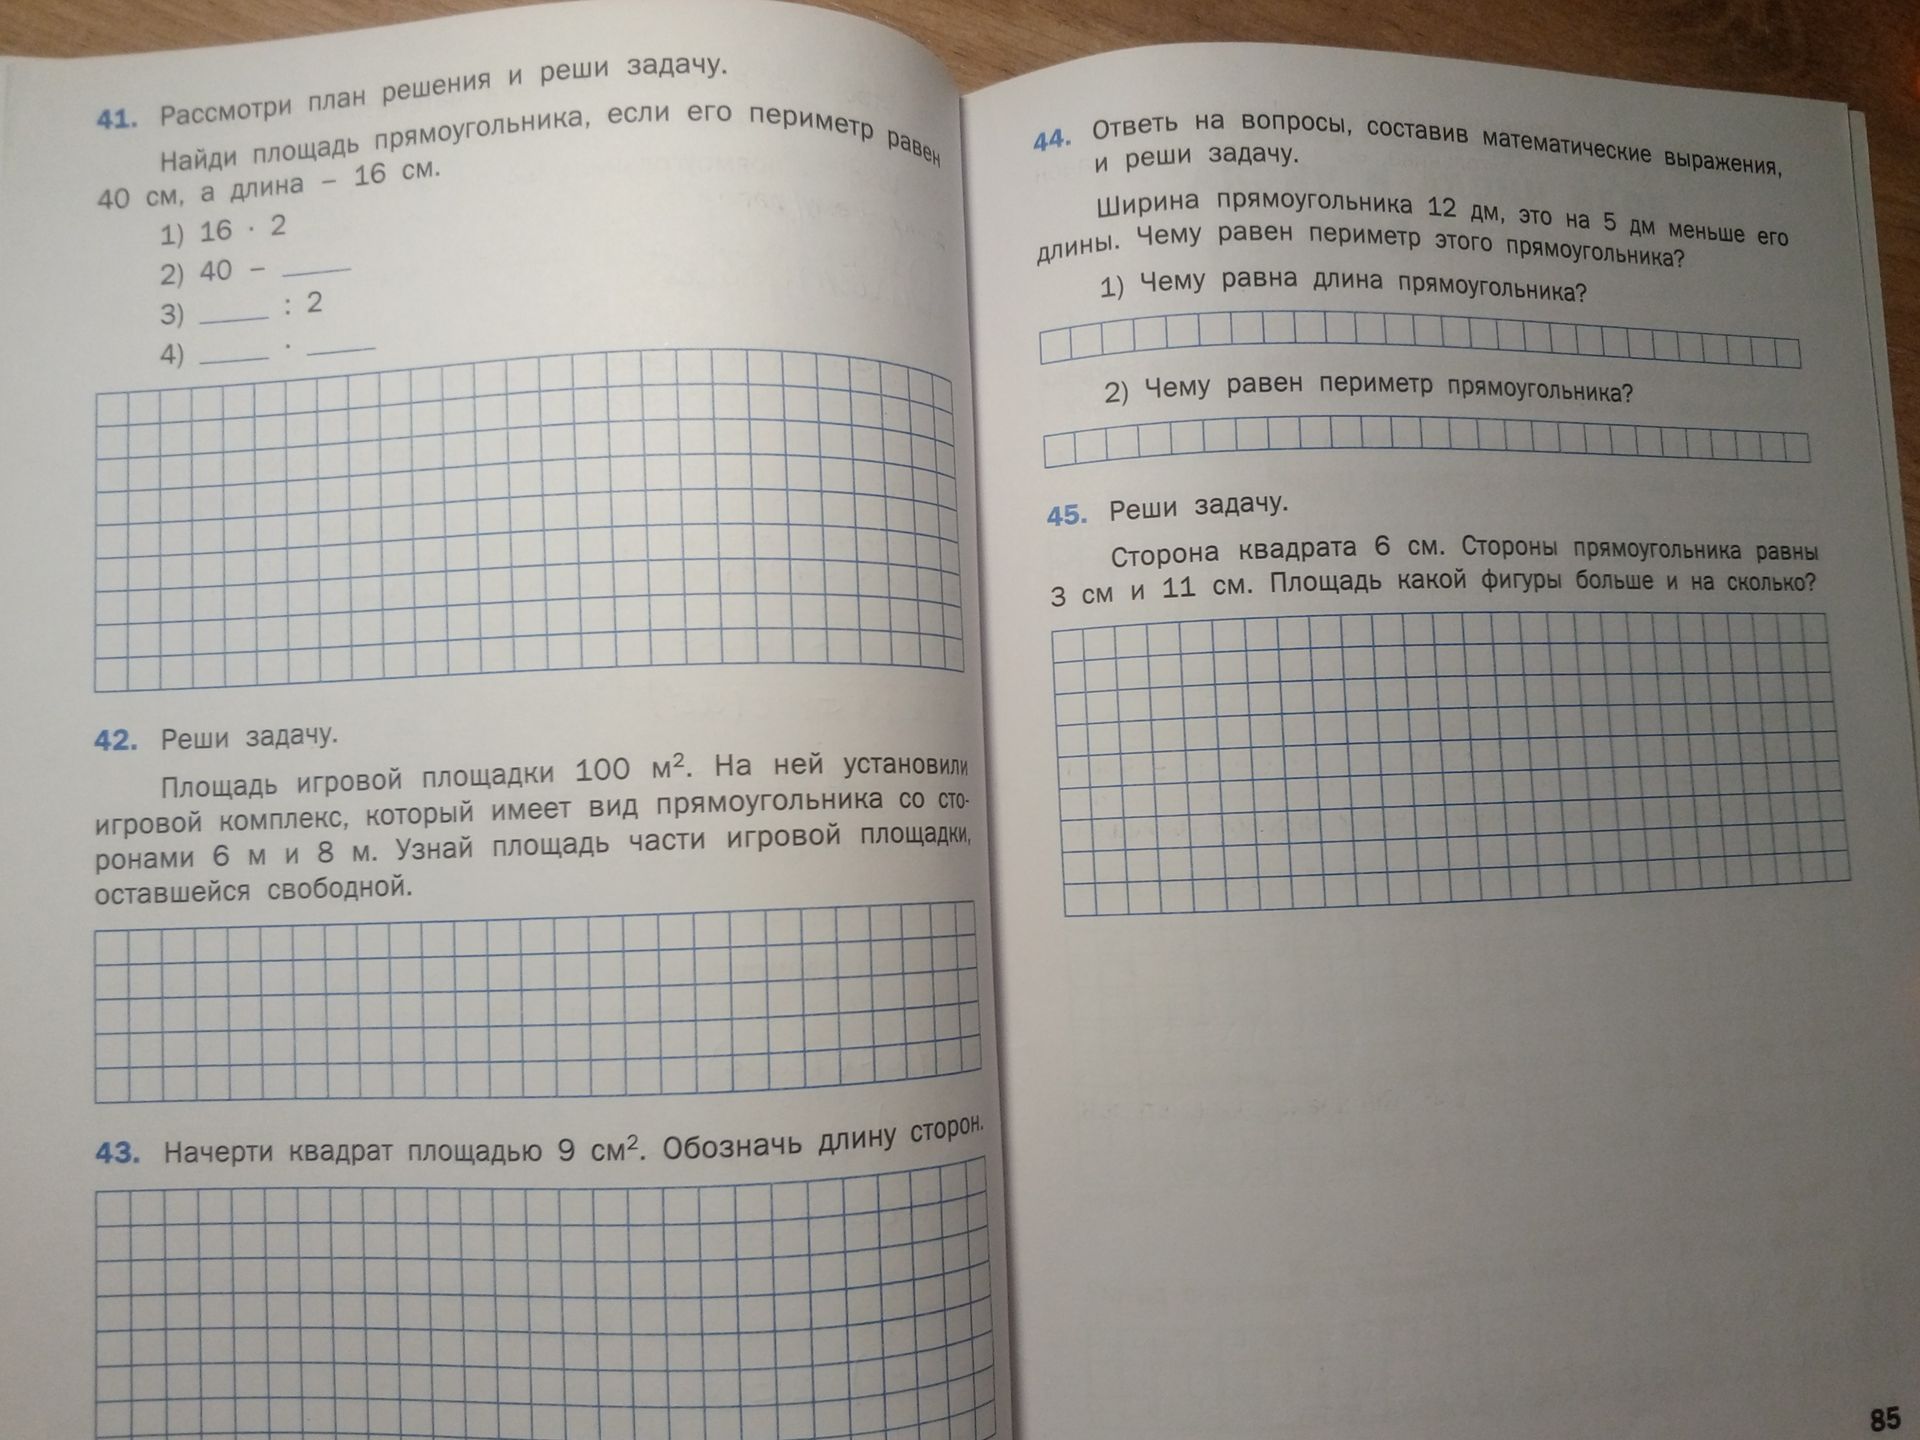 41. Рассмотри план решения и реши задачу.
Найди площадь прямоугольника, если его периметр равен
40 см, а длина – 16 см.
1) 16 · 2
2) 40 – ____
3) ____ : 2
4) ____ · ____
42. Реши задачу.
Площадь игровой площадки 100 м². На ней установили
игровой комплекс, который имеет вид прямоугольника со сто-
ронами 6 м и 8 м. Узнай площадь части игровой площадки,
оставшейся свободной.
43. Начерти квадрат площадью 9 см². Обозначь длину сторон.
44. Ответь на вопросы, составив математические выражения,
и реши задачу.
Ширина прямоугольника 12 дм, это на 5 дм меньше его
длины. Чему равен периметр этого прямоугольника?
1) Чему равна длина прямоугольника?
2) Чему равен периметр прямоугольника?
45. Реши задачу.
Сторона квадрата 6 см. Стороны прямоугольника равны
3 см и 11 см. Площадь какой фигуры больше и на сколько?
85